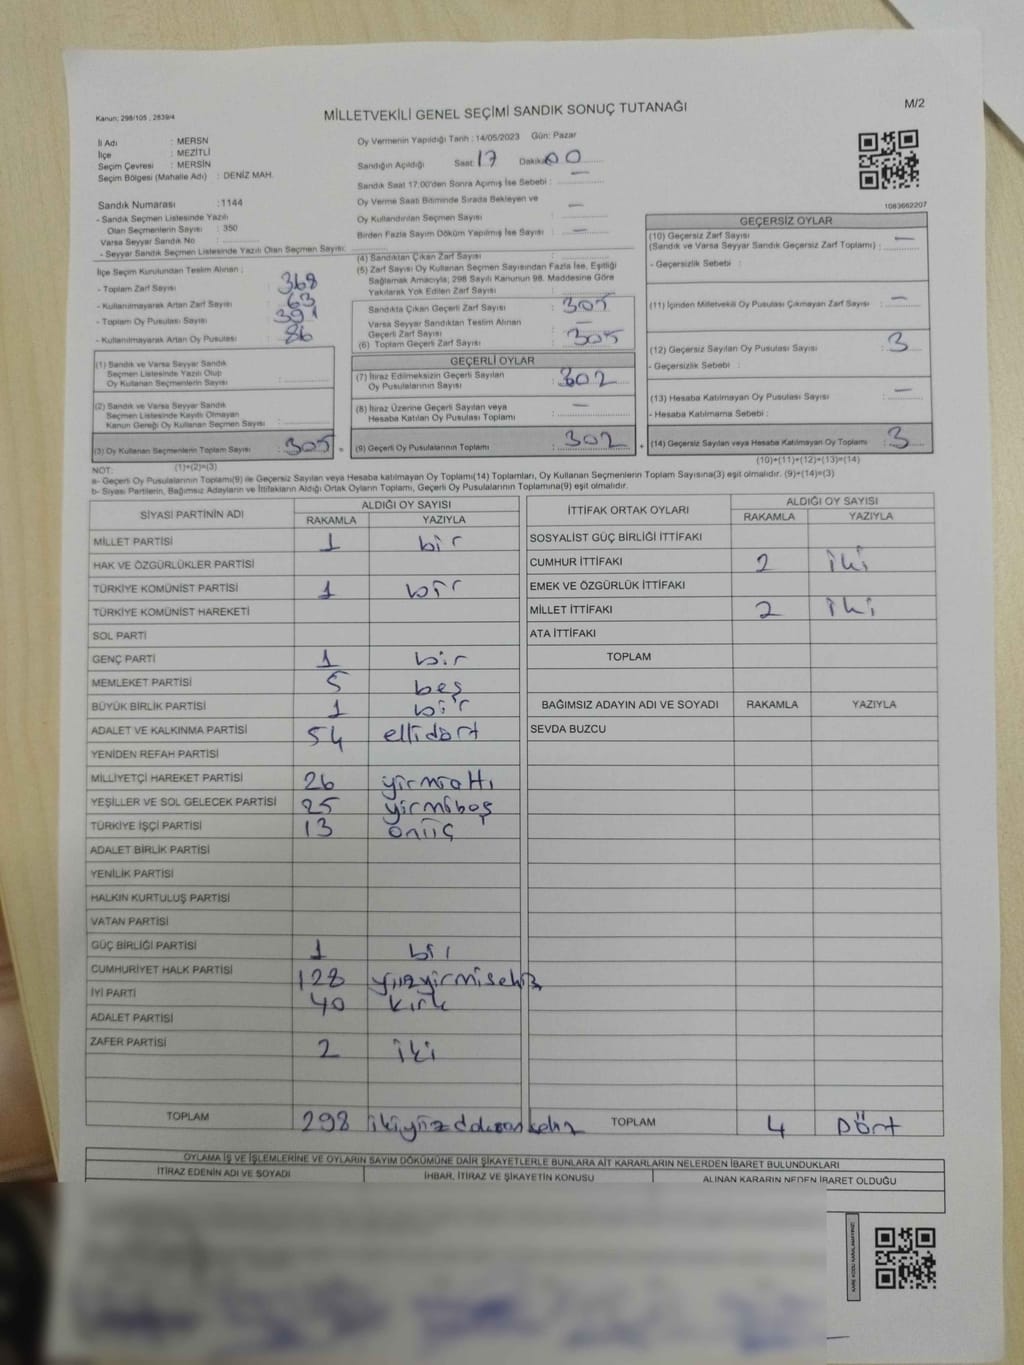 Kanun: 298/105 , 2839/4
MİLLETVEKİLİ GENEL SEÇİMİ SANDIK SONUÇ TUTANAĞI
M/2
İl Adı : MERSN
İlçe : MEZİTLİ
Seçim Çevresi : MERSİN
Seçim Bölgesi (Mahalle Adı) : DENİZ MAH.
Sandık Numarası : 1144
- Sandık Seçmen Listesinde Yazılı
Olan Seçmenlerin Sayısı : 350
Varsa Seyyar Sandık No :
- Seyyar Sandık Seçmen Listelerinde Yazılı Olan Seçmen Sayısı:
Oy Vermenin Yapıldığı Tarih : 14/05/2023 Gün: Pazar
Sandığın Açıldığı Saat: 17 Dakika: 00
Sandık Saat 17:00'den Sonra Açımış İse Sebebi : —
Oy Verme Saati Bitiminde Sırada Bekleyen ve
Oy Kullandırılan Seçmen Sayısı : —
Birden Fazla Sayım Döküm Yapılmış İse Sayısı : —
1083662207
İlçe Seçim Kurulundan Teslim Alınan ;
- Toplam Zarf Sayısı : 368
- Kullanılmayarak Artan Zarf Sayısı : 63
- Toplam Oy Pusulası Sayısı : 391
- Kullanılmayarak Artan Oy Pusulası : 86
(1) Sandık ve Varsa Seyyar Sandık
Seçmen Listesinde Yazılı Olup
Oy Kullanan Seçmenlerin Sayısı :
(2) Sandık ve Varsa Seyyar Sandık
Seçmen Listesinde Kayıtlı Olmayan
Kanun Gereği Oy Kullanan Seçmen Sayısı :
(3) Oy Kullanan Seçmenlerin Toplam Sayısı : 305
(1)+(2)=(3)
(4) Sandıktan Çıkan Zarf Sayısı :
(5) Zarf Sayısı Oy Kullanan Seçmen Sayısından Fazla İse, Eşitliği
Sağlamak Amacıyla; 298 Sayılı Kanunun 98. Maddesine Göre
Yakılarak Yok Edilen Zarf Sayısı :
Sandıkta Çıkan Geçerli Zarf Sayısı : 305
Varsa Seyyar Sandıktan Teslim Alınan
Geçerli Zarf Sayısı : —
(6) Toplam Geçerli Zarf Sayısı : 305
GEÇERLİ OYLAR
(7) İtiraz Edilmeksizin Geçerli Sayılan
Oy Pusulalarının Sayısı : 302
(8) İtiraz Üzerine Geçerli Sayılan veya
Hesaba Katılan Oy Pusulası Toplamı : —
(9) Geçerli Oy Pusulalarının Toplamı : 302
GEÇERSİZ OYLAR
(10) Geçersiz Zarf Sayısı
(Sandık ve Varsa Seyyar Sandık Geçersiz Zarf Toplamı) : —
- Geçersizlik Sebebi :
(11) İçinden Milletvekili Oy Pusulası Çıkmayan Zarf Sayısı : —
(12) Geçersiz Sayılan Oy Pusulası Sayısı : 3
- Geçersizlik Sebebi :
(13) Hesaba Katılmayan Oy Pusulası Sayısı : —
- Hesaba Katılmama Sebebi :
(14) Geçersiz Sayılan veya Hesaba Katılmayan Oy Toplamı : 3
(10)+(11)+(12)+(13)=(14)
NOT:
a- Geçerli Oy Pusulaları Toplamı(9) ile Geçersiz Sayılan veya Hesaba katılmayan Oy Toplamı(14) Toplamları, Oy Kullanan Seçmenlerin Toplam Sayısına(3) eşit olmalıdır. (9)+(14)=(3)
b- Siyasi Partilerin, Bağımsız Adayların ve İttifakların Aldığı Ortak Oyların Toplamı, Geçerli Oy Pusulalarının Toplamına(9) eşit olmalıdır.
SİYASİ PARTİNİN ADI ALDIĞI OY SAYISI
RAKAMLA YAZIYLA
MİLLET PARTİSİ 1 bir
HAK VE ÖZGÜRLÜKLER PARTİSİ
TÜRKİYE KOMÜNİST PARTİSİ 1 bir
TÜRKİYE KOMÜNİST HAREKETİ
SOL PARTİ
GENÇ PARTİ 1 bir
MEMLEKET PARTİSİ 5 beş
BÜYÜK BİRLİK PARTİSİ 1 bir
ADALET VE KALKINMA PARTİSİ 54 ellidört
YENİDEN REFAH PARTİSİ
MİLLİYETÇİ HAREKET PARTİSİ 26 yirmialtı
YEŞİLLER VE SOL GELECEK PARTİSİ 25 yirmibeş
TÜRKİYE İŞÇİ PARTİSİ 13 onüç
ADALET BİRLİK PARTİSİ
YENİLİK PARTİSİ
HALKIN KURTULUŞ PARTİSİ
VATAN PARTİSİ
GÜÇ BİRLİĞİ PARTİSİ 1 bir
CUMHURİYET HALK PARTİSİ 128 yüzyirmisekiz
İYİ PARTİ 40 kırk
ADALET PARTİSİ
ZAFER PARTİSİ 2 iki
TOPLAM 298 ikiyüzdoksansekiz
İTTİFAK ORTAK OYLARI ALDIĞI OY SAYISI
RAKAMLA YAZIYLA
SOSYALİST GÜÇ BİRLİĞİ İTTİFAKI
CUMHUR İTTİFAKI 2 iki
EMEK VE ÖZGÜRLÜK İTTİFAKI
MİLLET İTTİFAKI 2 iki
ATA İTTİFAKI
TOPLAM
BAĞIMSIZ ADAYIN ADI VE SOYADI RAKAMLA YAZIYLA
SEVDA BUZCU
TOPLAM 4 Dört
OYLAMA İŞ VE İŞLEMLERİNE VE OYLARIN SAYIM DÖKÜMÜNE DAİR ŞİKAYETLERLE BUNLARA AİT KARARLARIN NELERDEN İBARET BULUNDUKLARI
İTİRAZ EDENİN ADI VE SOYADI İHBAR, İTİRAZ VE ŞİKAYETİN KONUSU ALINAN KARARIN NEDEN İBARET OLDUĞU
KARE KODU KARALAMAYINIZ!